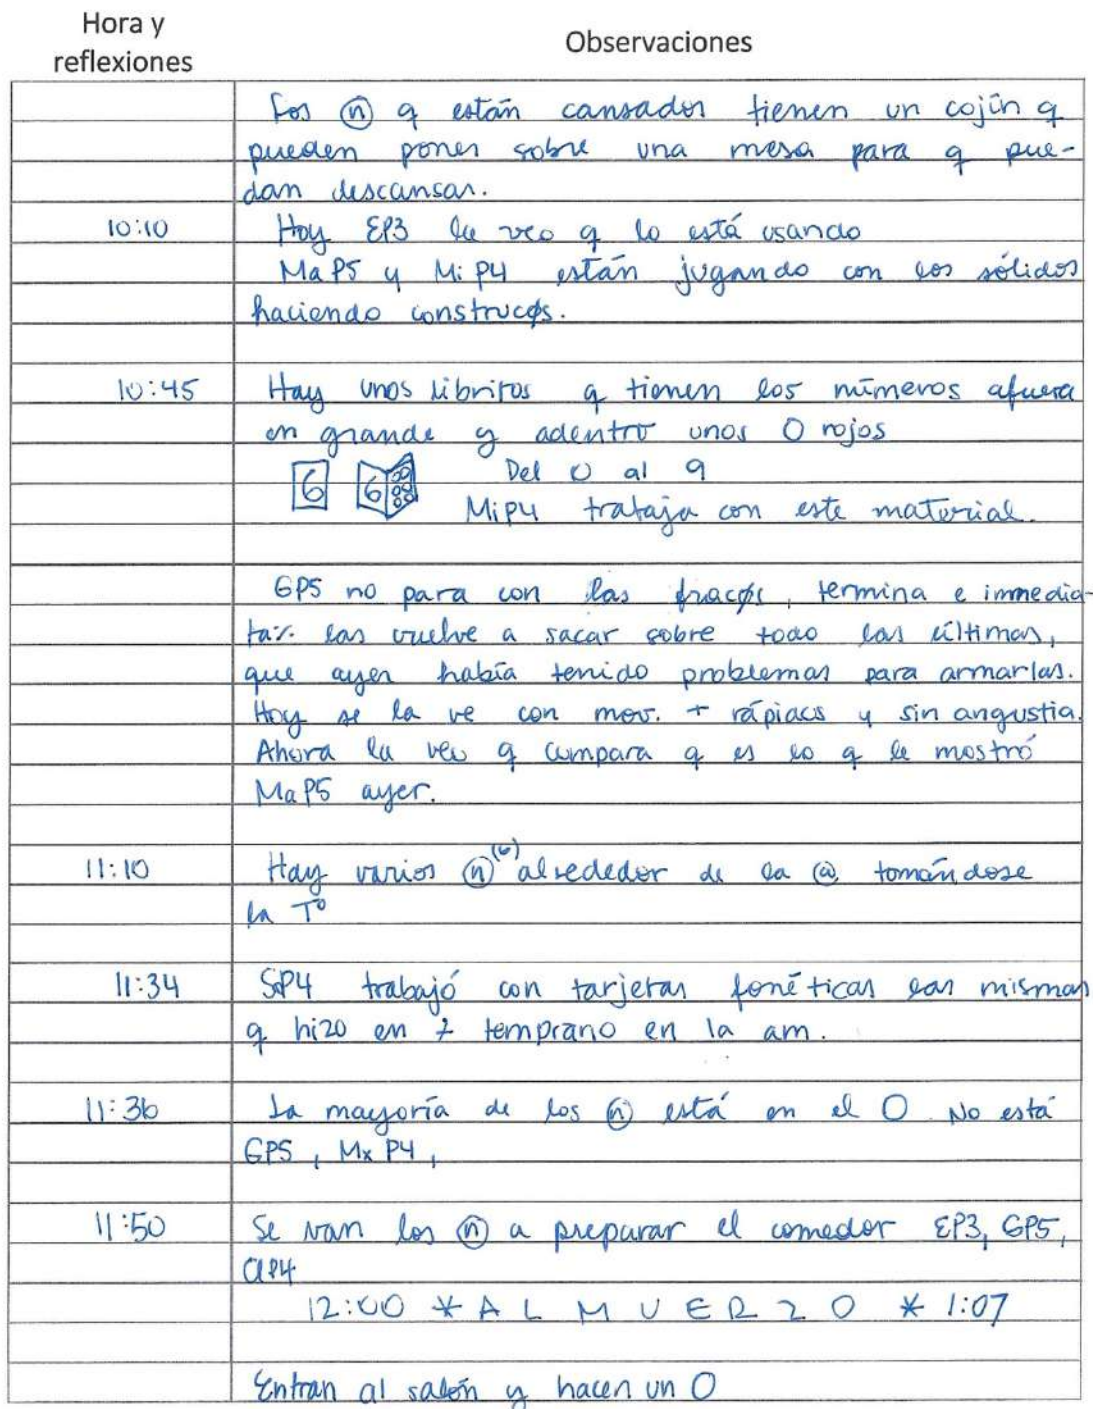 Hora y
reflexiones
Observaciones
Los ⓝ q están cansados tienen un cojín q
pueden poner sobre una mesa para q pue-
dan descansar.
10:10 Hoy EP3 le veo q lo está usando
MaP5 y MiP4 están jugando con los sólidos
haciendo construcøs.
10:45 Hay unos libritos q tienen los números afuera
en grande y adentro unos O rojos
6 6 Del 0 al 9
MiP4 trabaja con este material.
GP5 no para con las fracøs, termina e inmedia-
ta%. las vuelve a sacar sobre todo las últimas,
que ayer había tenido problemas para armarlas.
Hoy se la ve con mov. + rápidos y sin angustia.
Ahora la veo q compara q es lo q le mostró
MaP5 ayer.
11:10 Hay varios ⓝ (6) alrededor de la ⓐ tomándose
la Tº
11:34 SP4 trabajó con tarjetas fonéticas las mismas
q hizo en + temprano en la am.
11:36 La mayoría de los ⓝ está en el O. No está
GP5, MxP4,
11:50 Se van los ⓝ a preparar el comedor EP3, GP5,
12:00 * A L M U E R Z O * 1:07
Entran al salón y hacen un O